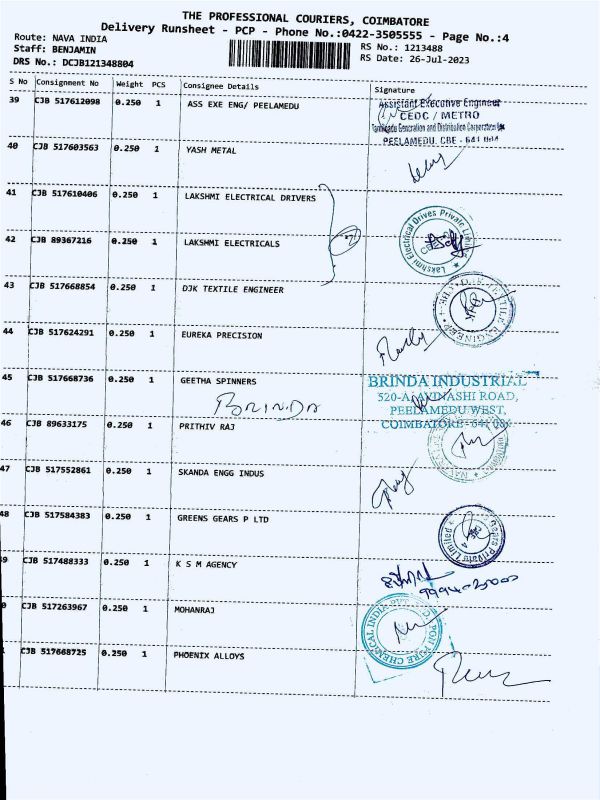 THE PROFESSIONAL COURIERS, COIMBATORE
Delivery Runsheet - PCP - Phone No.:0422-3505555 - Page No.:4
Route: NAVA INDIA
Staff: BENJAMIN
DRS No.: DCJB121348804
RS No.: 1213488
RS Date: 26-Jul-2023
S No Consignment No Weight PCS Consignee Details Signature
39 CJB 517612098 0.250 1 ASS EXE ENG/ PEELAMEDU
Assistant Executive Engineer
CEDC / METRO
Tamilnadu Generation and Distribution Corporation
PEELAMEDU, CBE - 641 004
40 CJB 517603563 0.250 1 YASH METAL
41 CJB 517610406 0.250 1 LAKSHMI ELECTRICAL DRIVERS
42 CJB 89367216 0.250 1 LAKSHMI ELECTRICALS
Lakshmi Electrical Drives Private Limited
43 CJB 517668854 0.250 1 DJK TEXTILE ENGINEER
44 CJB 517624291 0.250 1 EUREKA PRECISION
45 CJB 517668736 0.250 1 GEETHA SPINNERS
BRINDA
BRINDA INDUSTRIAL
520-A, AVINASHI ROAD,
PEELAMEDU WEST,
COIMBATORE - 641 004
46 CJB 89633175 0.250 1 PRITHIV RAJ
47 CJB 517552861 0.250 1 SKANDA ENGG INDUS
48 CJB 517584383 0.250 1 GREENS GEARS P LTD
Gears Private Limited
9 CJB 517488333 0.250 1 K S M AGENCY
0 CJB 517263967 0.250 1 MOHANRAJ
PON PURE CHEMICAL INDIA
CJB 517668725 0.250 1 PHOENIX ALLOYS